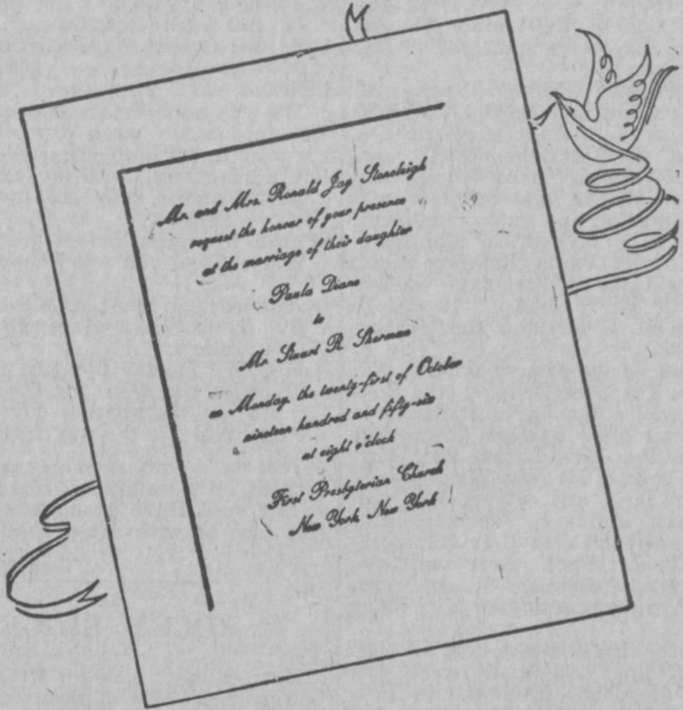 Mr. and Mrs. Ronald Jay Stanleigh
request the honour of your presence
at the marriage of their daughter
Paula Diane
to
Mr. Stuart R. Sherman
on Monday, the twenty-first of October
nineteen hundred and fifty-six
at eight o'clock
First Presbyterian Church
New York, New York